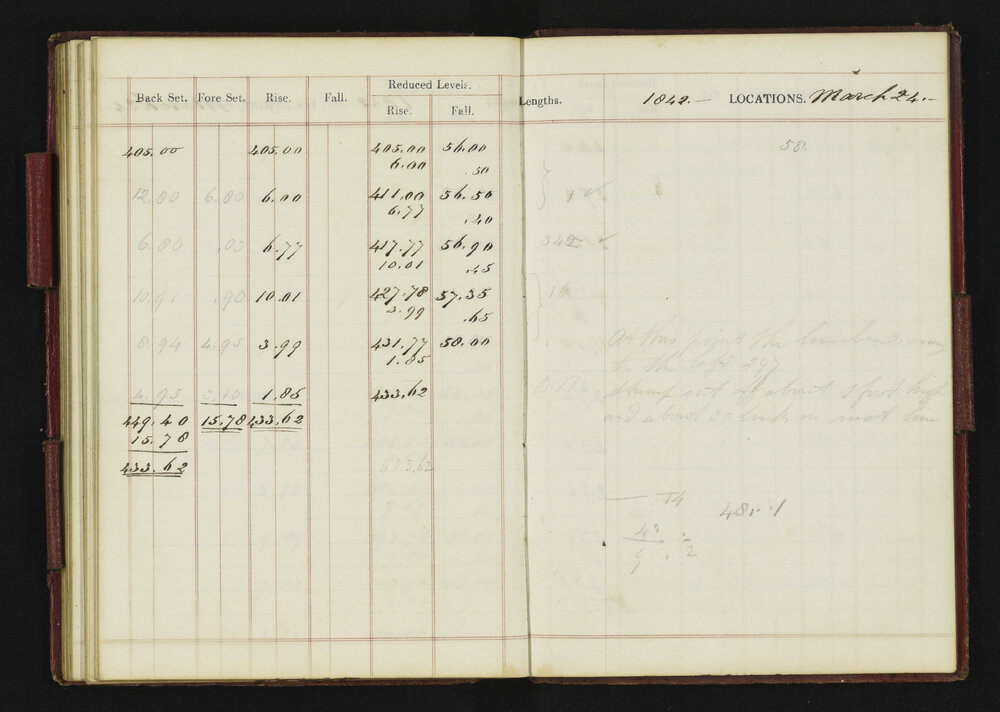 Reduced Levels.
Back Set. Fore Set. Rise. Fall. Rise. Fall. Lengths. 1842.— LOCATIONS. March 24.—
405.00 405.00 405.00 56.00 58.
6.00 .50
12.80 6.80 6.00 411.00 56.50
6.77 .40
6.80 .03 6.77 417.77 56.90 342
10.01 .45
10.91 .90 10.01 427.78 57.35 18
3.99 .65
8.94 4.95 3.99 431.77 58.00 At this point the line bends
1.85 to the left 297
4.95 3.10 1.85 433.62 B.M. stump cut off about 1 foot high
449.40 15.78 433.62 and about 30 links on line
15.78
433.62
433.62
14
481.1
43
9 2